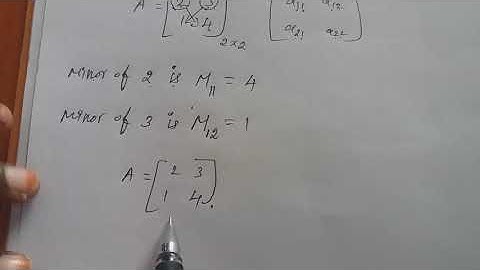 A = [2 3
1 4] 2×2
[a11 a12
a21 a22]
Minor of 2 is M11 = 4
Minor of 3 is M12 = 1
A = [2 3
1 4]